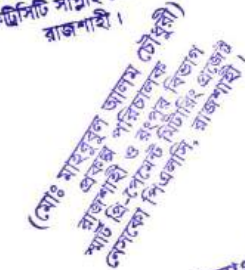 রাজশাহী।
(মোঃ মাহবুবুল আলম চৌধুরী)
প্রকল্প পরিচালক
রাজশাহী ও রংপুর বিভাগ
স্মার্ট প্রি-পেমেন্ট মিটারিং প্রজেক্ট
নেসকো পিএলসি, রাজশাহী।